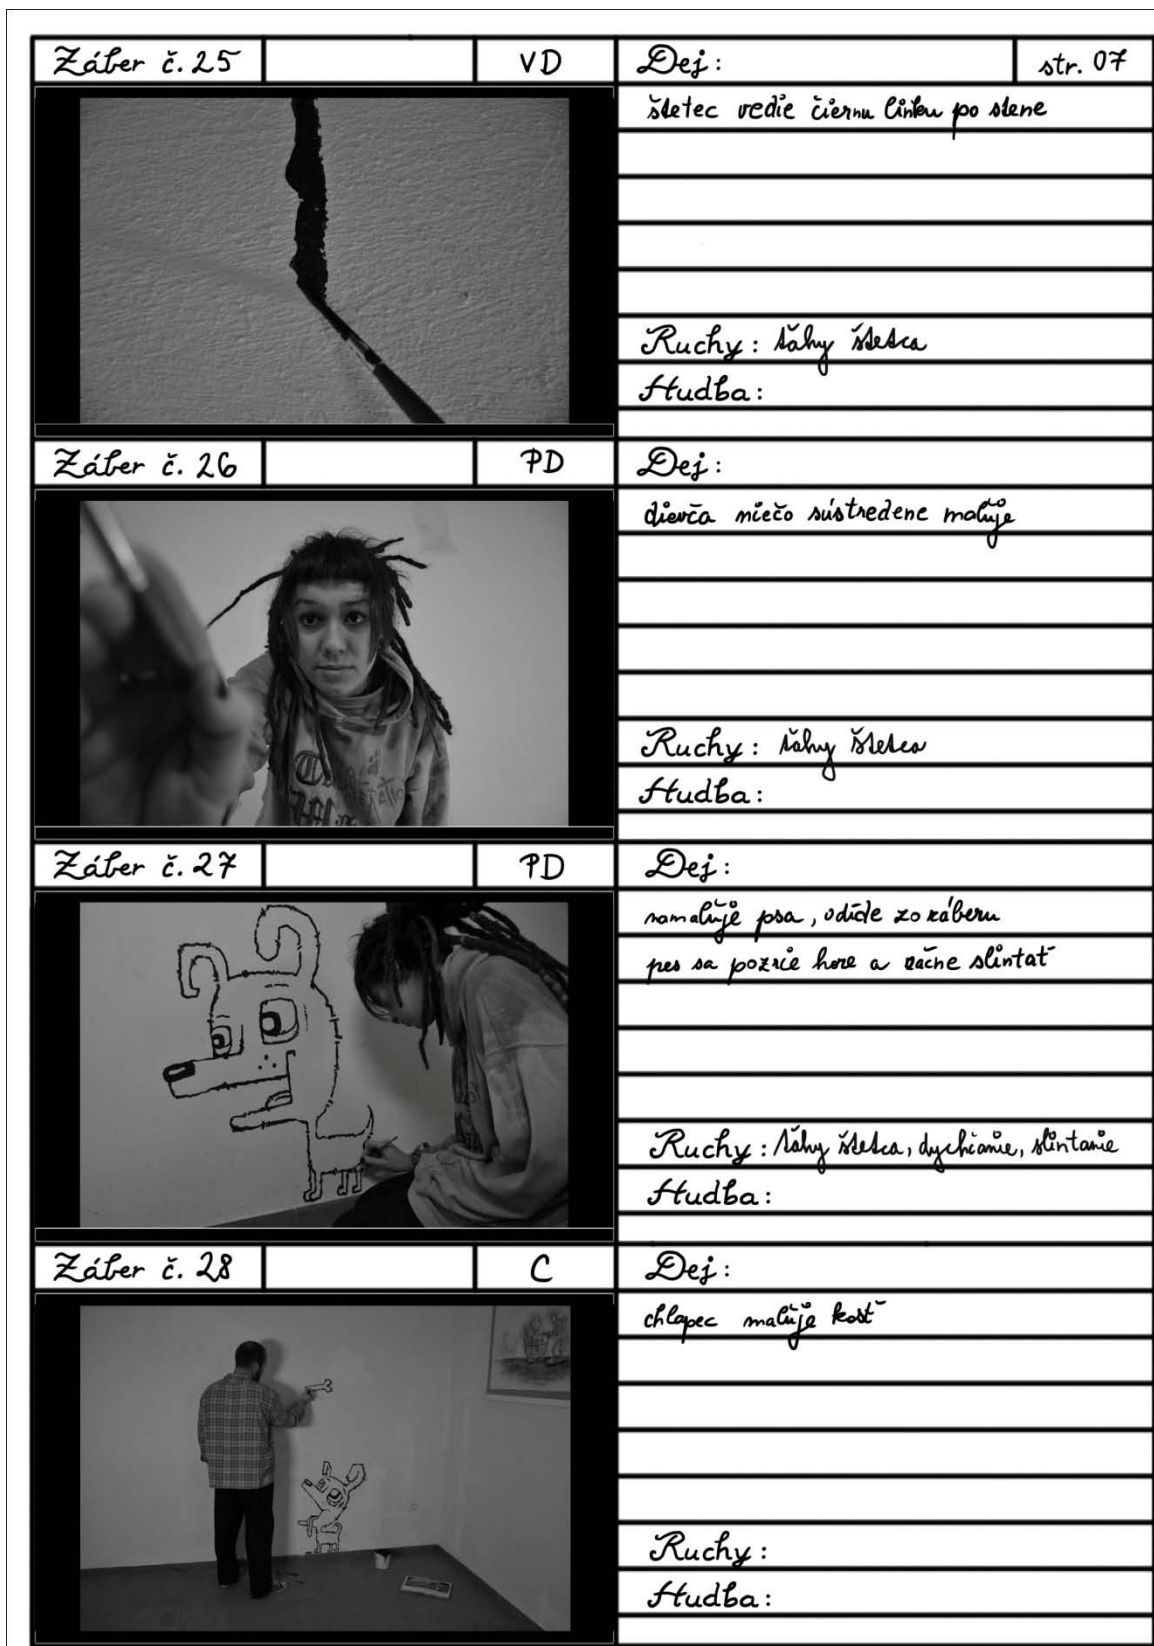 Záber č. 25 VD Dej: str. 07
štetec vedie čiernu linku po stene
Ruchy: ťahy štetca
Hudba:
Záber č. 26 PD Dej:
dievča niečo sústredene maľuje
Ruchy: ťahy štetca
Hudba:
Záber č. 27 PD Dej:
namaľuje psa, odíde zo záberu
pes sa pozrie hore a začne slintať
Ruchy: ťahy štetca, dychčanie, slintanie
Hudba:
Záber č. 28 C Dej:
chlapec maľuje kosť
Ruchy:
Hudba: